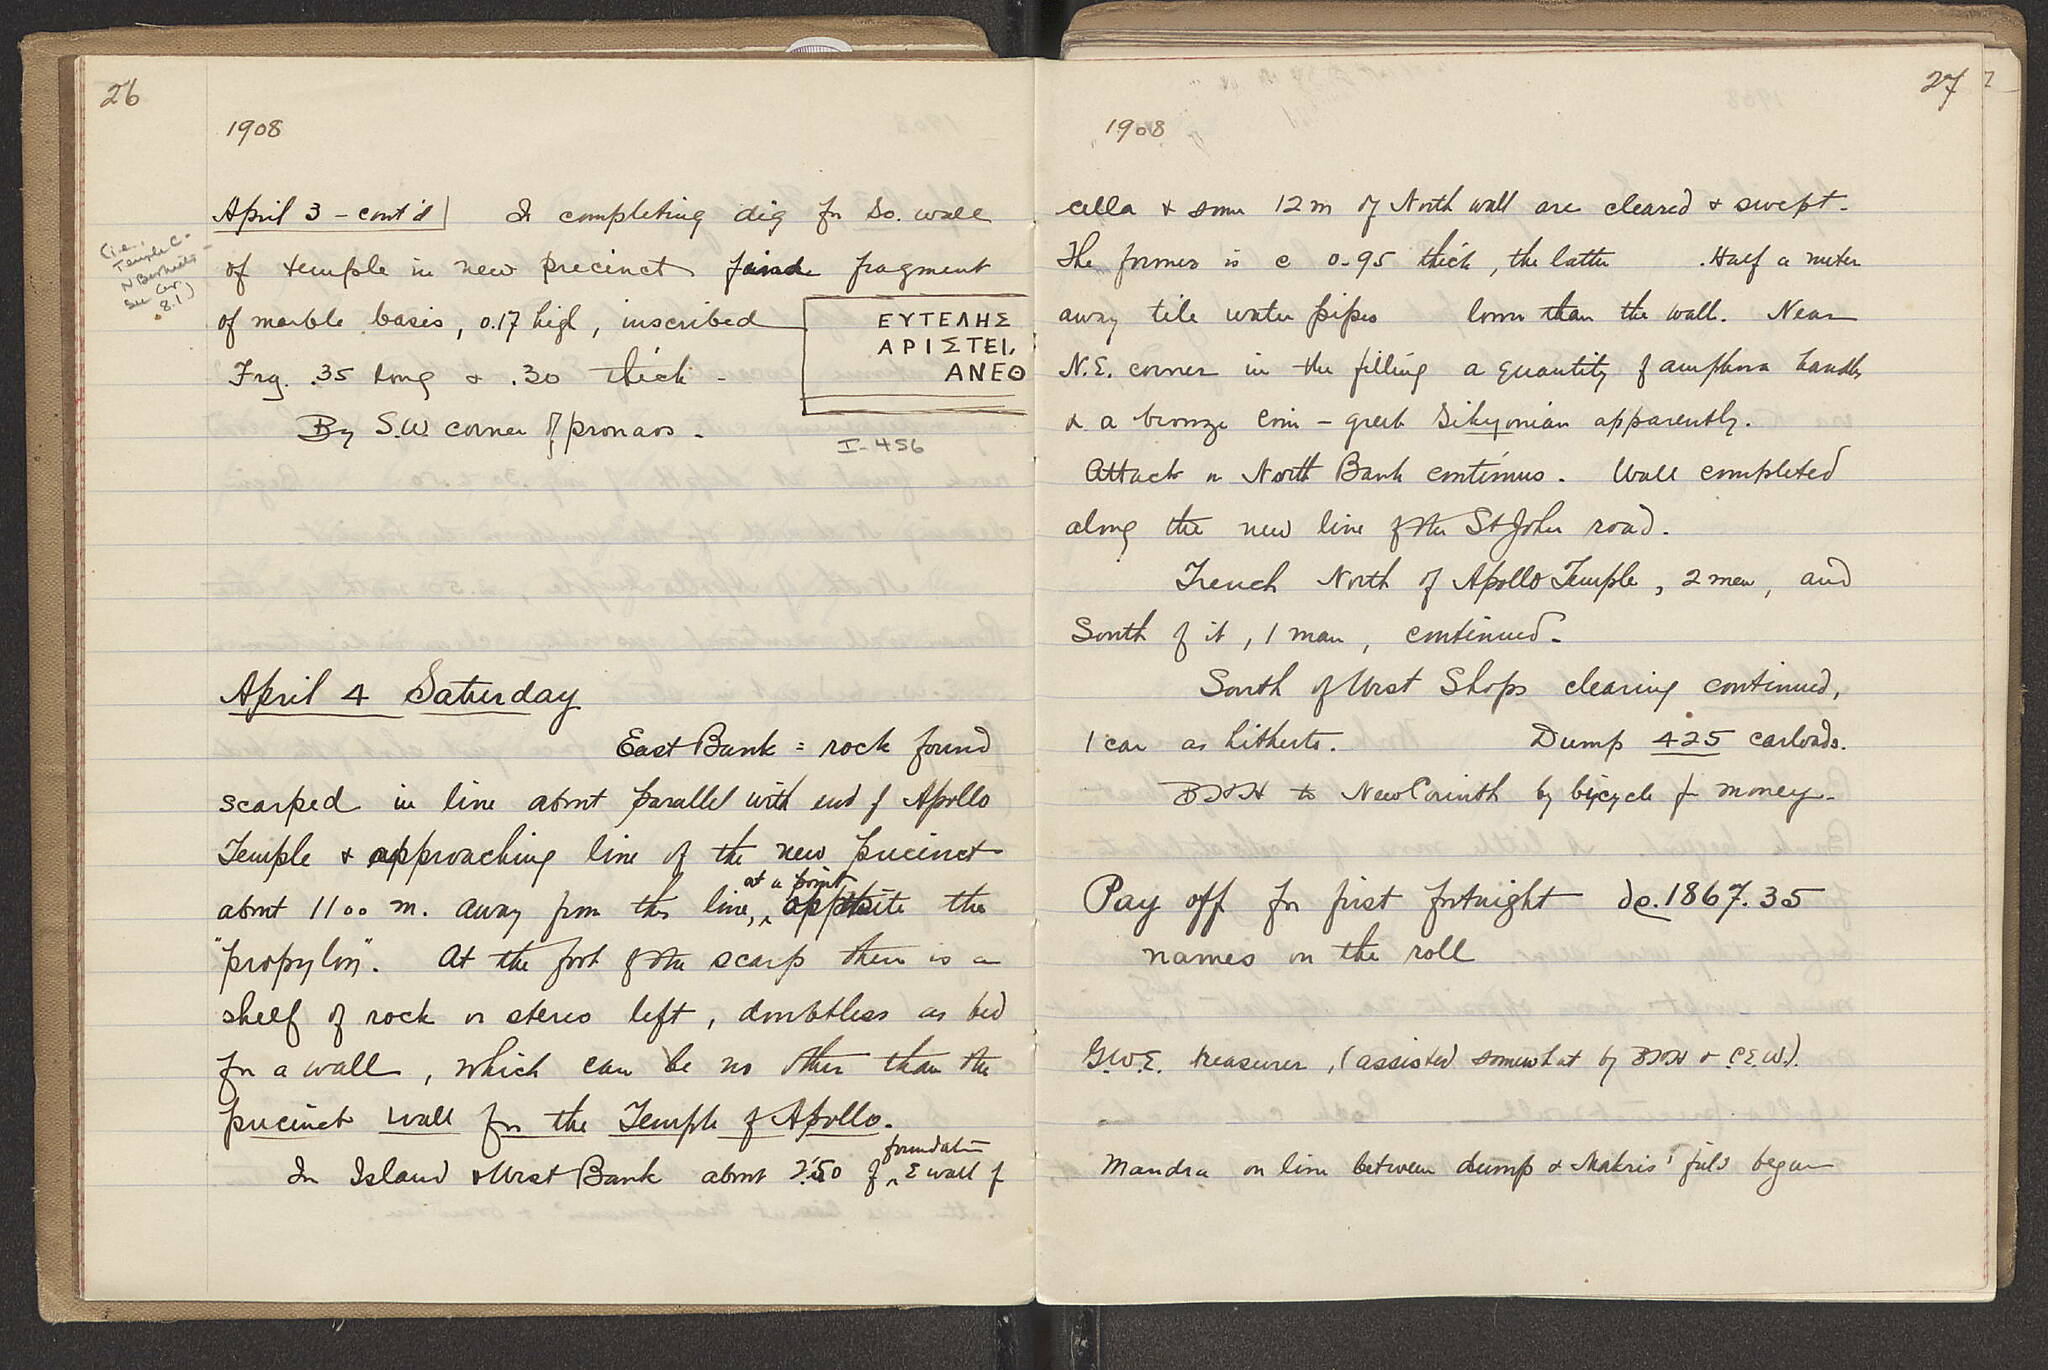 26
1908
April 3 - cont'd In completing dig for So. wall
(i.e.
Temple C.
See Cor.
8.1)
of temple in new precinct found fragment
of marble basis, 0.17 high, inscribed
ΕΥΤΕΛΗΣ
ΑΡΙΣΤΕΙ.
ΑΝΕΘ
Frg. .35 long & .30 thick -
By S.W. corner of pronaos -
I-456
April 4 Saturday
East Bank = rock found
scarped in line about parallel with end of Apollo
Temple & approaching line of the new precinct
about 1100 m. away from this line, at a point opposite the
"propylon". At the foot of the scarp there is a
shelf of rock or stereo left, doubtless as bed
for a wall, which can be no other than the
precinct wall for the Temple of Apollo.
In Island & West Bank about 2.50 of foundation E wall of
27
1908
cella & some 12 m of North wall are cleared & swept.
The former is c 0.95 thick, the latter . Half a meter
away tile water pipes lower than the wall. Near
N.E. corner in the filling a quantity of amphora handles
& a bronze coin - greek Sikyonian apparently.
Attack on North Bank continues. Wall completed
along the new line of the St John road.
Trench North of Apollo Temple, 2 men, and
South of it, 1 man, continued.
South of West Shops clearing continued,
1 car as hitherto. Dump 425 carloads.
BHH to New Corinth by bicycle for money.
Pay off for first fortnight dr. 1867.35
names on the roll
G.W.E. treasurer, (assisted somewhat by BHH & C.E.W.).
Mandra on line between dump & Makris' field began